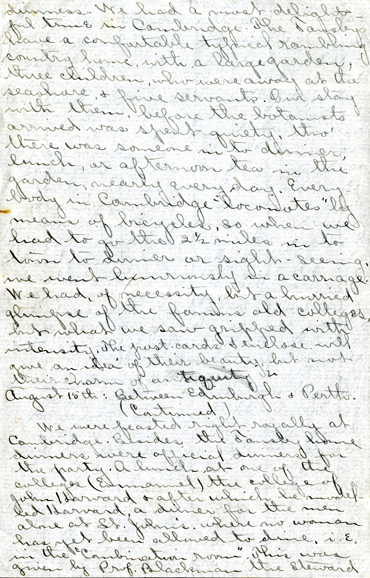 dinness. We had a most delight-
ful time in Cambridge. The Tansleys
have a comfortable typical rambling
country home, with a large garden,
three children, who were away at the
seashore & five servants. Our stay
with them, before the botanists
arrived was spent quietly, tho'
there was someone in to dinner,
lunch, or afternoon tea in the
garden, nearly every day. Every-
body in Cambridge "locomotes" by
means of bicycles, so when we
had to go the 2 1/2 miles in to
town to dinner or sight-seeing,
we went luxuriously in a carriage.
We had, of necessity, but a hurried
glimpse of the famous old colleges,
but what we saw gripped with
intensity. The post-cards I enclose will
give an idea of their beauty, but not
their charm of antiquity.
August 10th: Between Edinburgh & Perth.
(Continued)
We were feasted right royally at
Cambridge. Besides the Tansley home
dinners were official dinners for
the party. A lunch at one of the
colleges (Emmanuel) the college of
John Harvard & after which he model-
led Harvard, a dinner for the men
alone at St. John's, where no woman
has yet been allowed to dine, i.e.
in the "Combination room". This was
given by Prof. Blackman the steward